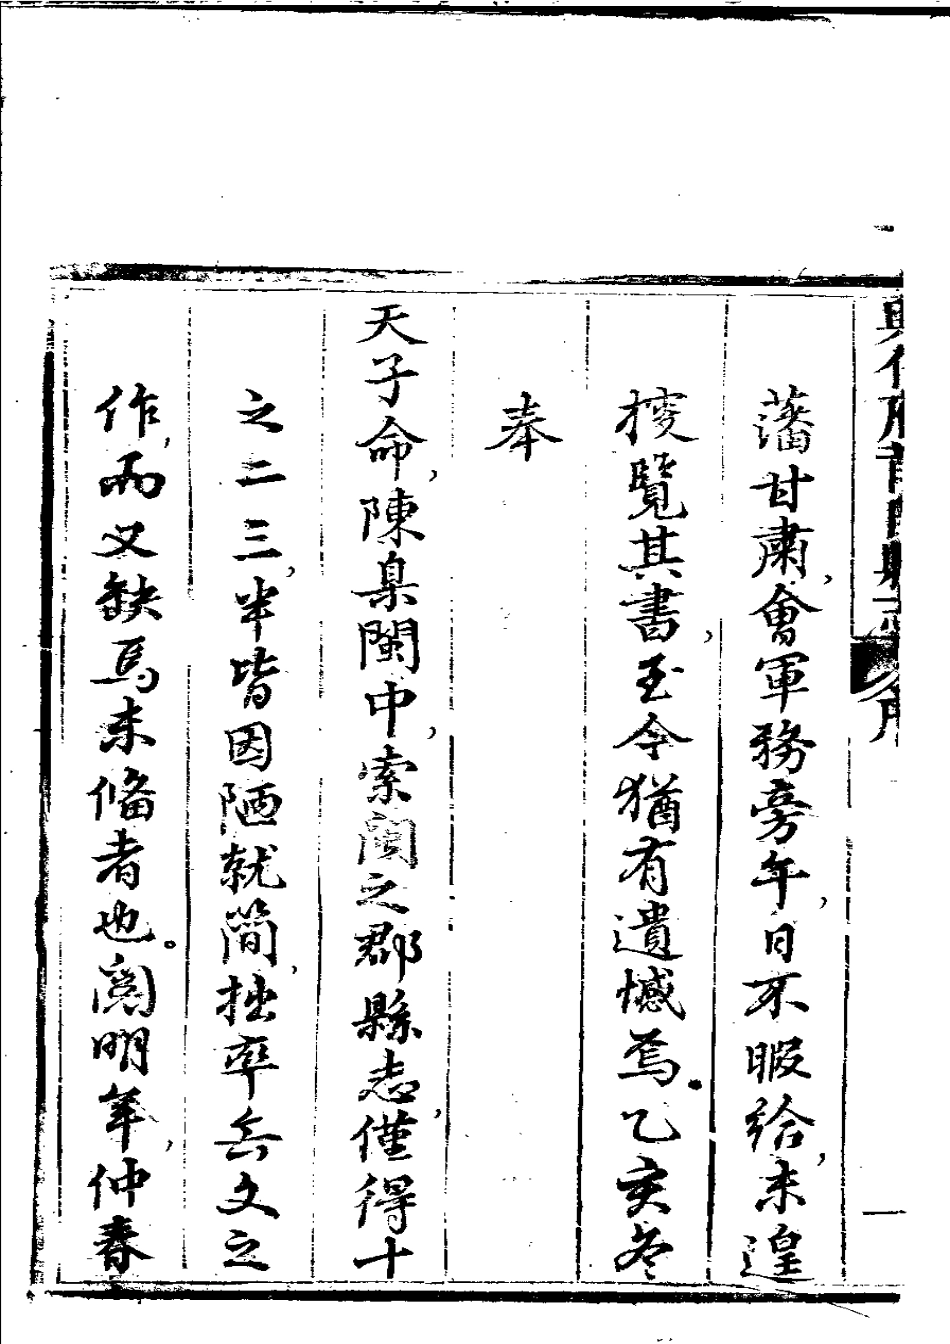 興化府莆田縣志
藩甘肅，會軍務旁午，日不暇給，未遑
搜覽其書，至今猶有遺憾焉。乙亥冬
奉
天子命，陳臬閩中，索閩之郡縣志，僅得十
之二三，半皆因陋就簡，拙率無文之
作，而又缺焉未備者也。閱明年，仲春